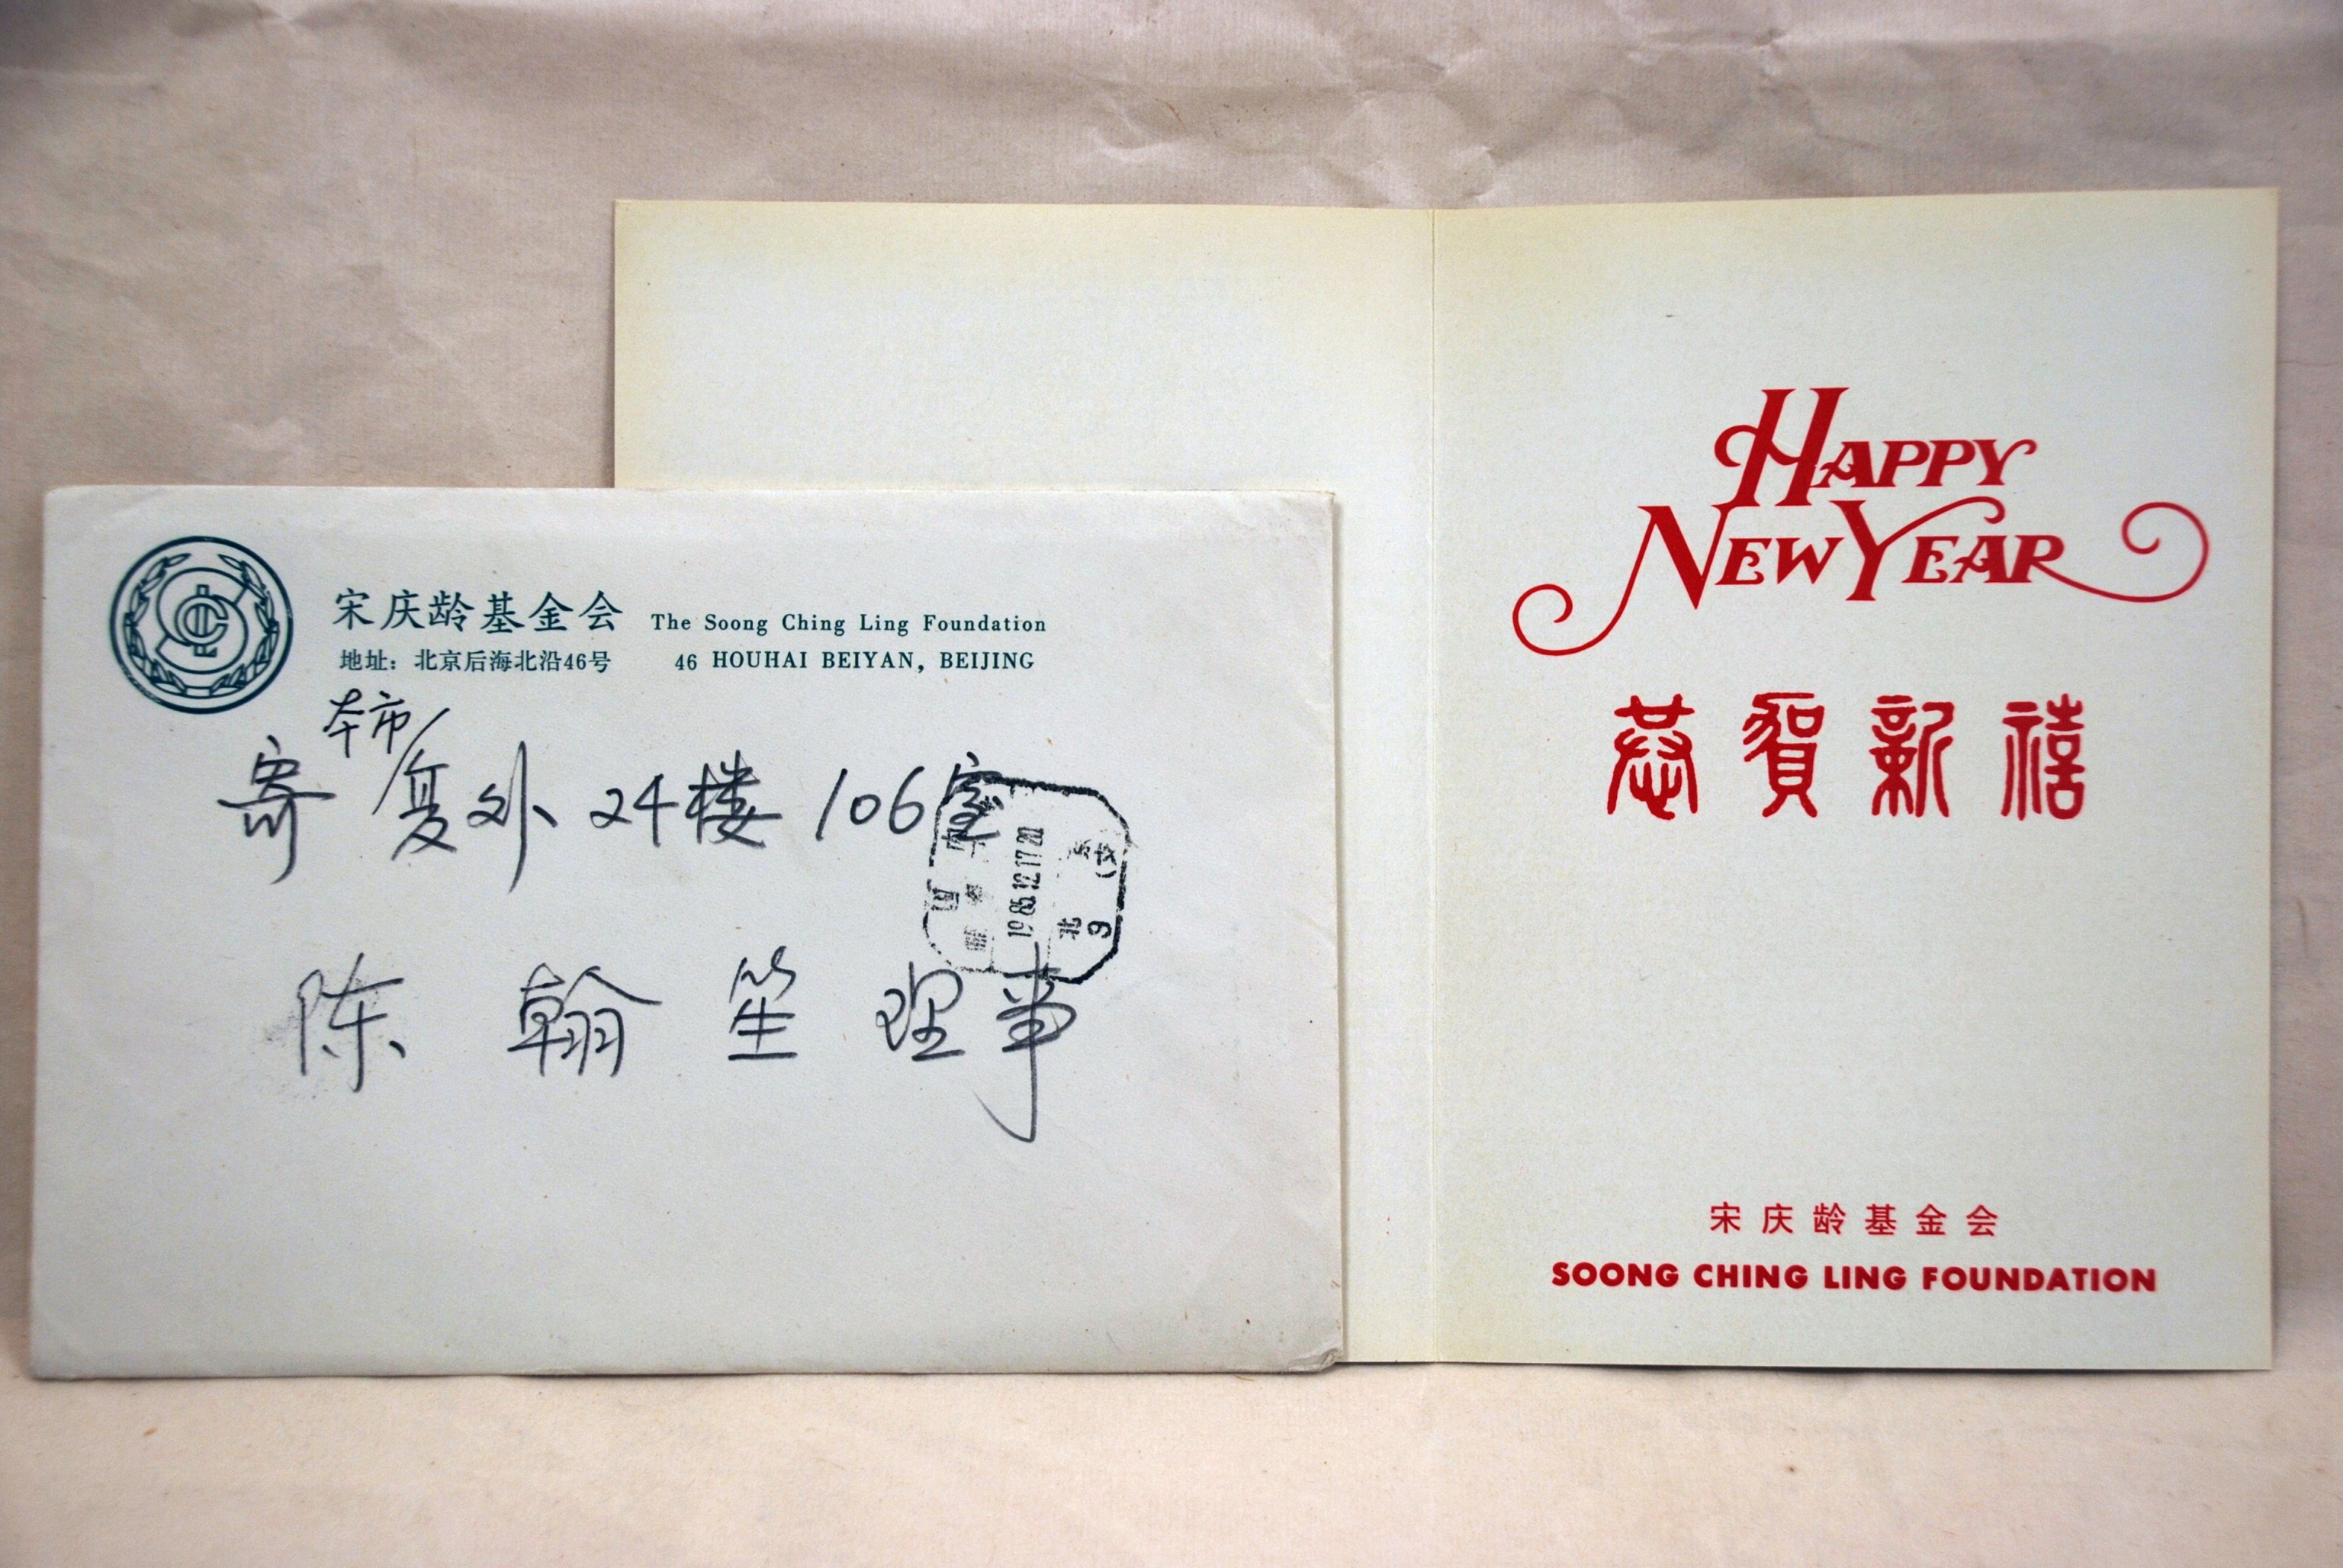 宋庆龄基金会 The Soong Ching Ling Foundation
地址：北京后海北沿46号 46 HOUHAI BEIYAN, BEIJING
本市
寄 复外 24楼 106室
陈翰笙 理事
1985.12.17.20
北京
9
HAPPY
NEW YEAR
恭賀新禧
宋庆龄基金会
SOONG CHING LING FOUNDATION